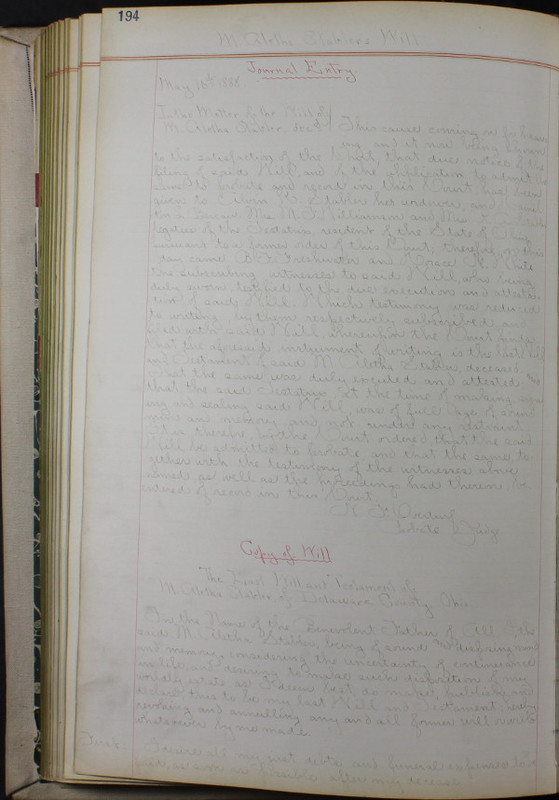 194
M. Aletha Stabler's Will
Journal Entry
May 16th 1888
In the Matter of the Will of
M. Aletha Stabler, dec'd. This cause coming on for hear-
ing and it now being shown
to the satisfaction of the Court, that due notice of the
filing of said Will, and of the application to admit the
same to probate and record in this Court, has been
given to Stabler her widower, and
Mrs. M. J. Williamson and Mrs.
legatees of the Testatrix resident of the State of Ohio
pursuant to a former order of this Court, therefore, on this
day came B. F. Freshwater and Horace A.
the subscribing witnesses to said Will, who being
duly sworn testified to the due execution and attesta-
tion of said Will. Which testimony was reduced
to writing, by them respectively subscribed, and
filed with said Will, whereupon the Court finds
that the aforesaid instrument of writing is the last Will
and Testament of said M. Aletha Stabler, deceased and
that the same was duly executed and attested
that the said Testatrix at the time of making, sign-
ing and sealing said Will, was of full age, of sound
mind and memory, and not under any restraint.
It is therefore by the Court ordered that the said
Will be admitted to probate and that the same, to-
gether with the testimony of the witnesses above
named as well as the proceedings had therein, be
entered of record in this Court.
Probate Judge
Copy of Will
The Last Will and Testament of
M. Aletha Stabler of Delaware County, Ohio.
In the Name of the Benevolent Father of All I, the
said M. Aletha Stabler, being of sound and disposing mind
and memory, considering the uncertainty of continuance
in life, and desiring to make such disposition of my
worldly estate as I deem best, do make, publish and
declare this to be my last Will and Testament hereby
revoking and annulling any and all former will or wills
whatsoever by me made.
First. I direct all my just debts and funeral expenses to be
paid, as soon as possible after my decease